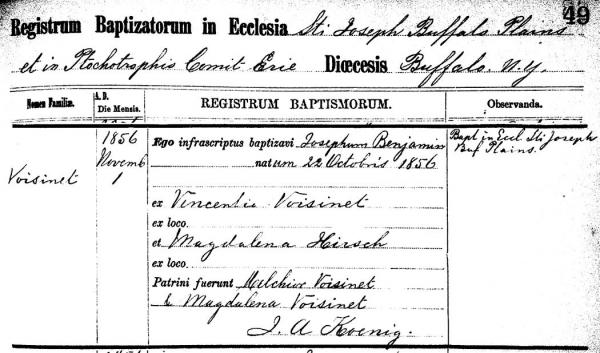 49
Registrum Baptizatorum in Ecclesia Sti Joseph Buffalo Plains
et in Ptochotrophio Comit. Erie Diœcesis Buffalo N.Y.
Nomen Familiæ. A. D. Die Mensis. REGISTRUM BAPTISMORUM. Observanda.
1856 Ego infrascriptus baptizavi Josephum Benjamin Bapt in Eccl. Sti Joseph
Novemb natum 22 Octobris 1856 Buf Plains.
Voisinet 1
ex Vincentio Voisinet
ex loco
et Magdalena Hirsch
ex loco
Patrini fuerunt Melchior Voisinet
& Magdalena Voisinet
J. A Koenig.